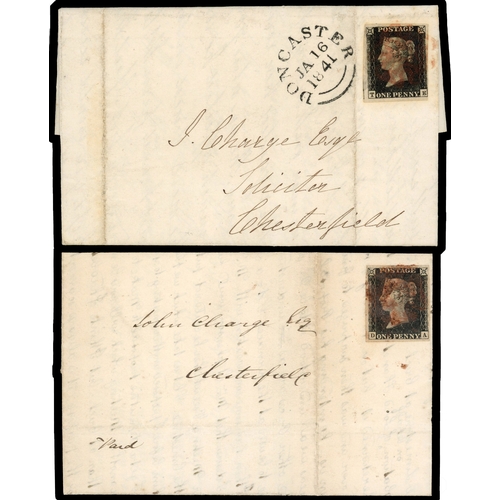 DONCASTER
JA 16
1841
POSTAGE
T E
ONE PENNY
J. Charge Esqr
Solicitor
Chesterfield
POSTAGE
D A
ONE PENNY
John Charge Esq
Chesterfield
Paid